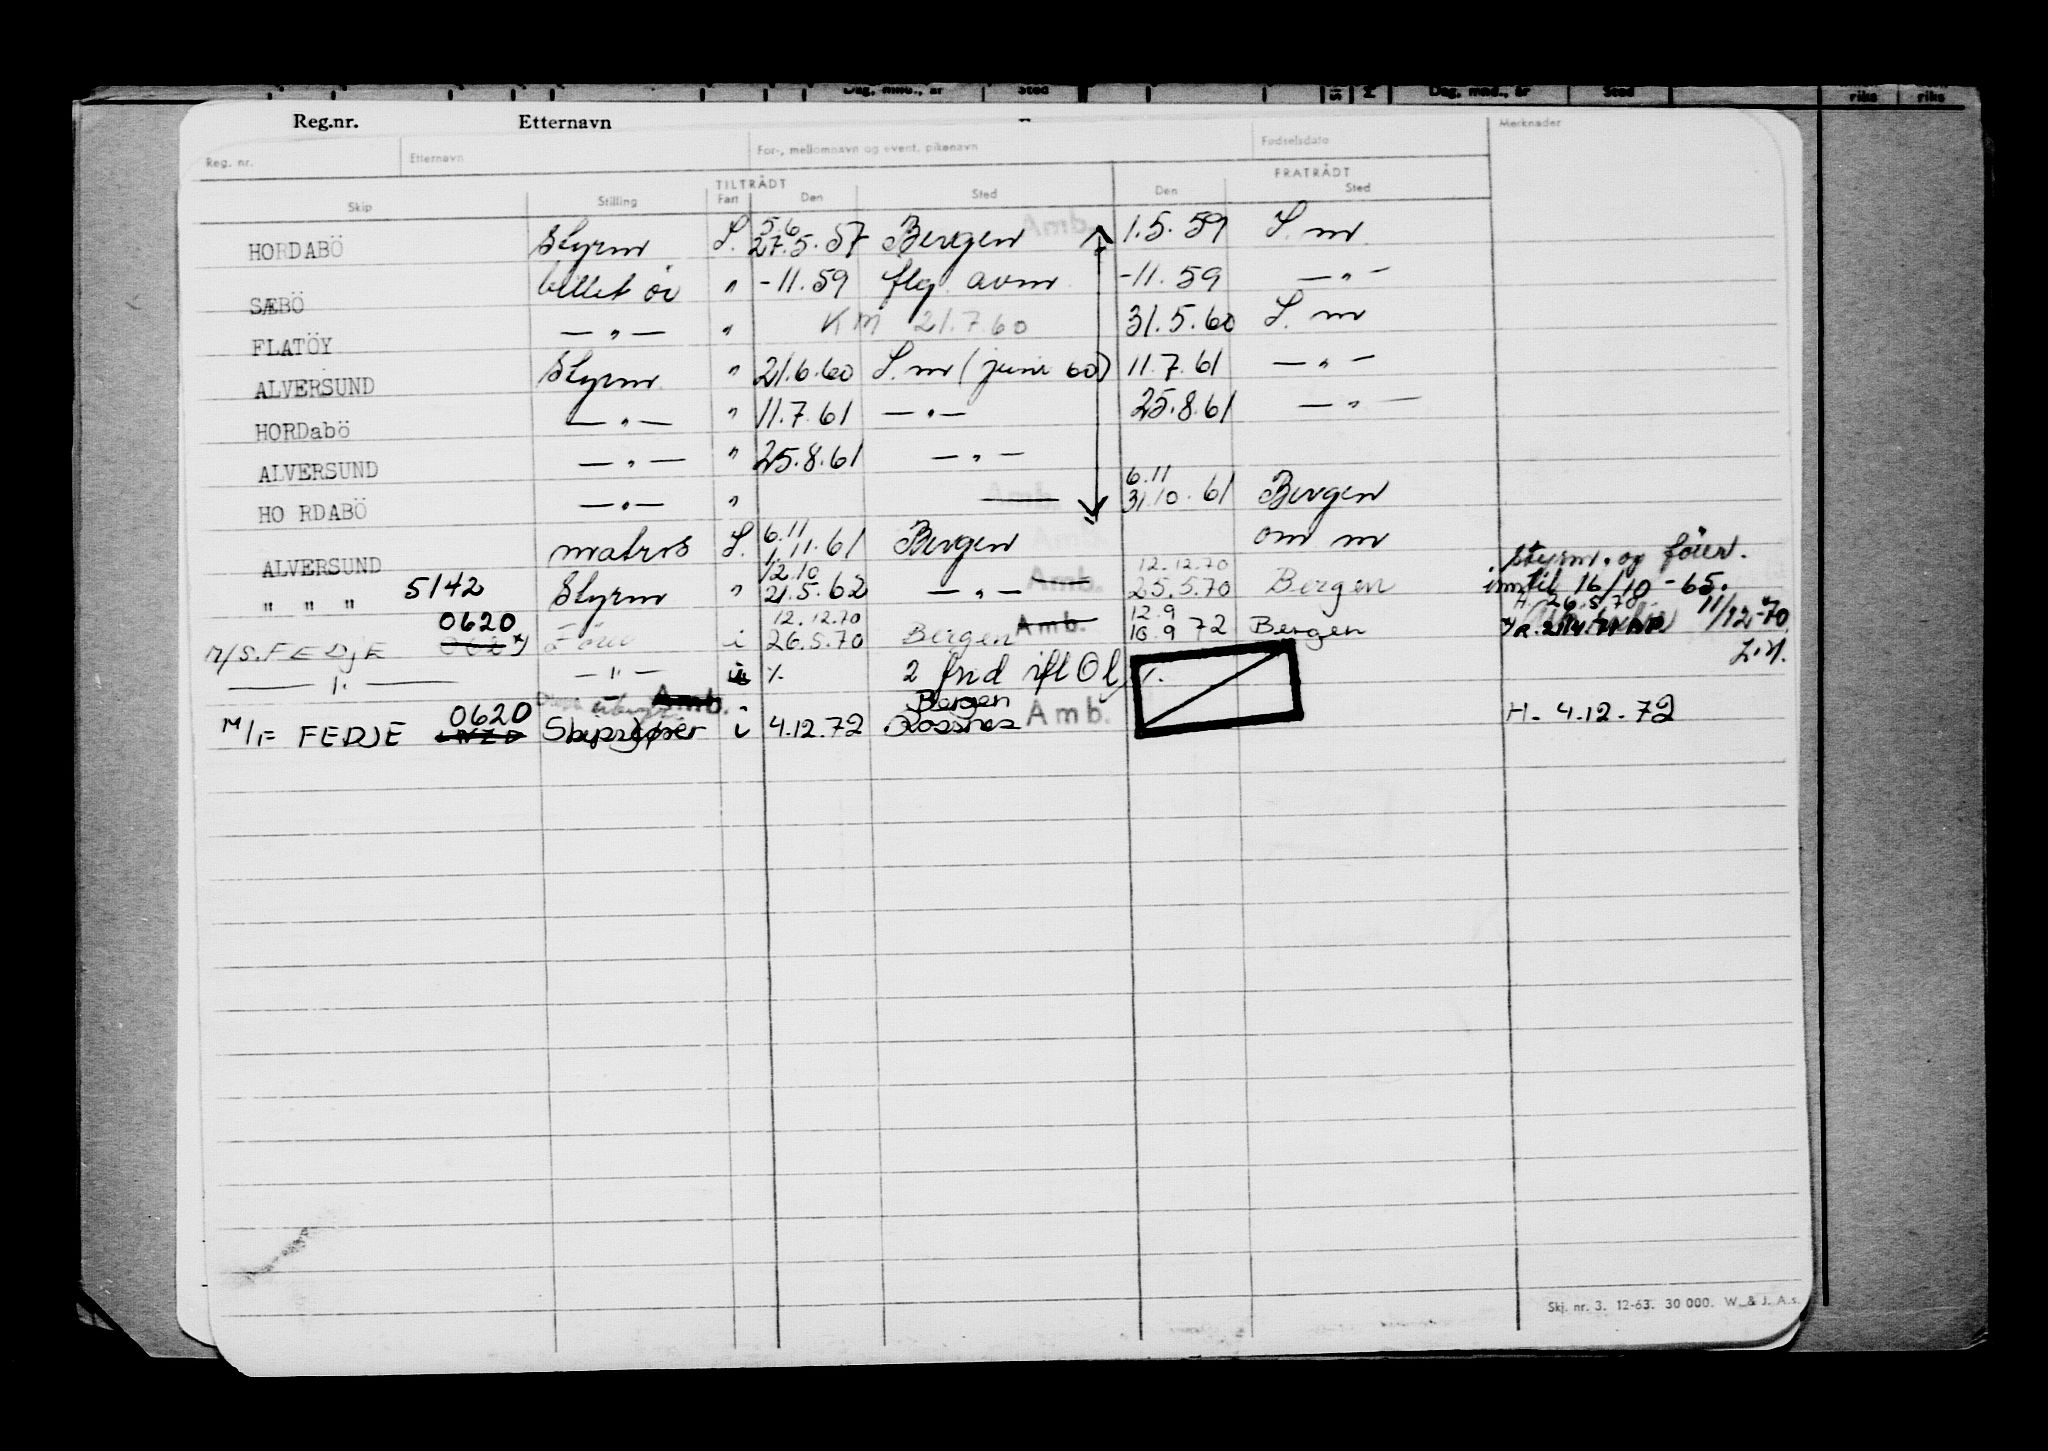 Dag, mnd., år Sted Dag, mnd., år Sted riks riks
Reg.nr. Etternavn
Reg. nr. Etternavn For-, mellomnavn og event. pikenavn Fødselsdato Merknader
TILTRÅDT FRATRÅDT
Skip Stilling Fart Den Sted Den Sted
HORDABÖ Styrm L. 5.6 27.5.57 Bergen Amb. 1.5.59 L. m
SÆBÖ billet ör " -11.59 flg. avm -11.59 — " —
FLATÖY — " — " KM 21.7.60 31.5.60 L. m
ALVERSUND Styrm " 21.6.60 L. m (juni 60) 11.7.61 — " —
HORDabö — " — " 11.7.61 — " — 25.8.61 — " —
ALVERSUND — " — " 25.8.61 — " —
HO RDABÖ — " — " 6.11 31.10.61 Bergen
ALVERSUND matros L. 6.11 1.11.61 Bergen om m
" " " 5142 Styrm " 12.10 21.5.62 — " — Amb. 12.12.70 25.5.70 Bergen styrm. og förer. inntil 16/10-65.
M/S. FEDJE 0620 x) i 12.12.70 26.5.70 Bergen Amb. 12.9 16.9 72 Bergen H. 26.5.70 11/12-70
— " — — " — i % 2 fnd ifl Ol %
Amb.
M/F FEDJE 0620 Skipsfører i 4.12.72 Bergen Rossnes Amb. H. 4.12.72
Skj. nr. 3. 12-63. 30 000. W. & J. A.s.